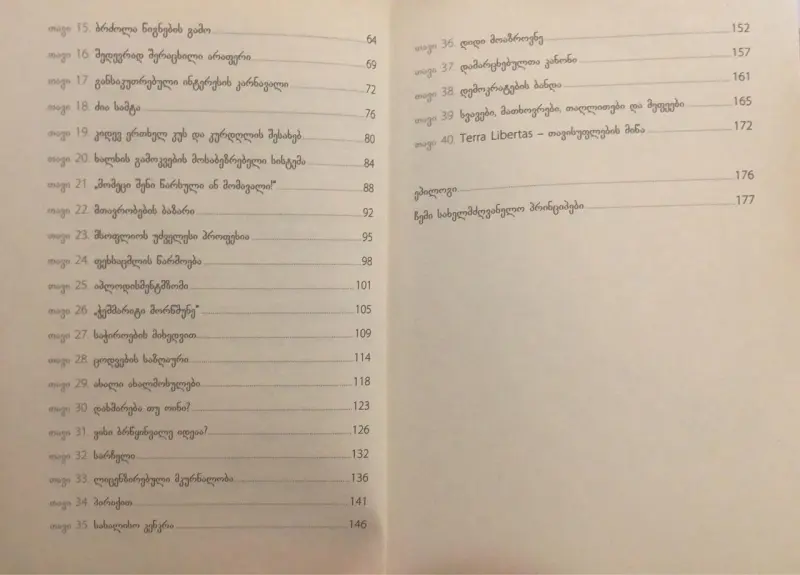 თავი 15. ბრძოლა წიგნების გამო 64
თავი 16. მედეგრად შერაცხილი არაფერი 69
თავი 17. განსაკუთრებული ინტერესის კარნავალი 72
თავი 18. ძია სამტა 76
თავი 19. კიდევ ერთხელ კუს და კურდღლის შესახებ 80
თავი 20. ხალხის გამოკვების მოსაბეზრებელი სისტემა 84
თავი 21. „მომეცი შენი წარსული ან მომავალი!“ 88
თავი 22. მთავრობების ბაზარი 92
თავი 23. მსოფლიოს უძველესი პროფესია 95
თავი 24. ფეხსაცმლის წარმოება 98
თავი 25. აპლოდისმენტმზომი 101
თავი 26. „ჭეშმარიტი მორწმუნე“ 105
თავი 27. საჭიროების მიხედვით 109
თავი 28. ცოდვების საზღაური 114
თავი 29. ახალი ახალმოსულები 118
თავი 30. დახმარება თუ ოინი? 123
თავი 31. ვისი ბრწყინვალე იდეაა? 126
თავი 32. სარჩელი 132
თავი 33. ლიცენზირებული მკურნალობა 136
თავი 34. პირიქით 141
თავი 35. სახალისო კენჭი 146
თავი 36. დიდი მოაზროვნე 152
თავი 37. დამარცხებულთა კანონი 157
თავი 38. დემოკრატების ბანდა 161
თავი 39. სვავები, მათხოვრები, თაღლითები და მეფეები 165
თავი 40. Terra Libertas – თავისუფლების მიწა 172
ეპილოგი 176
ჩემი სახელმძღვანელო პრინციპები 177